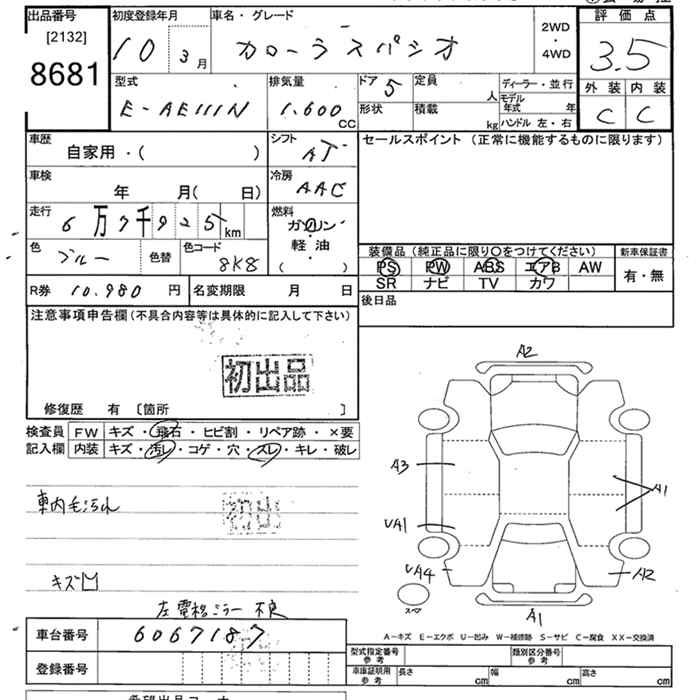 出品番号
[2132]
8681
初度登録年月
10 3月
車名・グレード
カローラスパシオ
2WD
・
4WD
評価点
3.5
外装 内装
C C
型式
E-AE111N
排気量
1.600 CC
ドア 5
形状
定員 人
積載 kg
ディーラー・並行
モデル年式 年
ハンドル 左・右
車歴
自家用・( )
シフト
AT
セールスポイント (正常に機能するものに限ります)
車検
年 月( 日)
冷房
AAC
走行
6万7千925km
燃料
ガソリン
・
軽油
( )
色
ブルー
色替
色コード
8K8
装備品(純正品に限り〇をつけてください)
新車保証書
PS PW ABS エアB AW
SR ナビ TV カワ
有・無
R券 10.980 円
名変期限 月 日
後日品
注意事項申告欄(不具合内容等は具体的に記入して下さい)
初出品
修復歴 有 〔箇所 〕
検査員 FW キズ・飛石・ヒビ割・リペア跡・×要
記入欄 内装 キズ・汚レ・コゲ・穴・スレ・キレ・破レ
車内毛汚れ
初出
キズ凹
左電格ミラー 不良
A2
A3
A1
UA1
UA4
A2
スペア
A1
A-キズ E-エクボ U-凹み W-補修跡 S-サビ C-腐食 XX-交換済
車台番号 6067187
登録番号
型式指定番号 参考
類別区分番号 参考
車庫証明用 参考
長さ cm
幅 cm
高さ cm